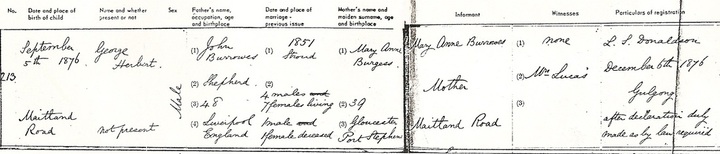 No.
Date and place of birth of child
Name and whether present or not
Sex
Father's name, occupation, age and birthplace
Date and place of marriage - previous issue
Mother's name and maiden surname, age and birthplace
Informant
Witnesses
Particulars of registration
213
September
5th 1876
Maitland
Road
George
Herbert.
not present
Male
(1) John
Burrowes
(2) Shepherd
(3) 48
(4) Liverpool
England
(1) 1851
Stroud
(2)
4 males and
7 females living
1 male and
1 female deceased
(1) Mary Anne
Burgess
(2) 39
(3) Gloucester
Port Stephen
Mary Anne Burrowes
Mother
Maitland Road
(1) none
(2) Mrs Lucas
(3)
L. S. Donaldson
December 6th 1876
Gulgong
after declaration duly
made as by law required